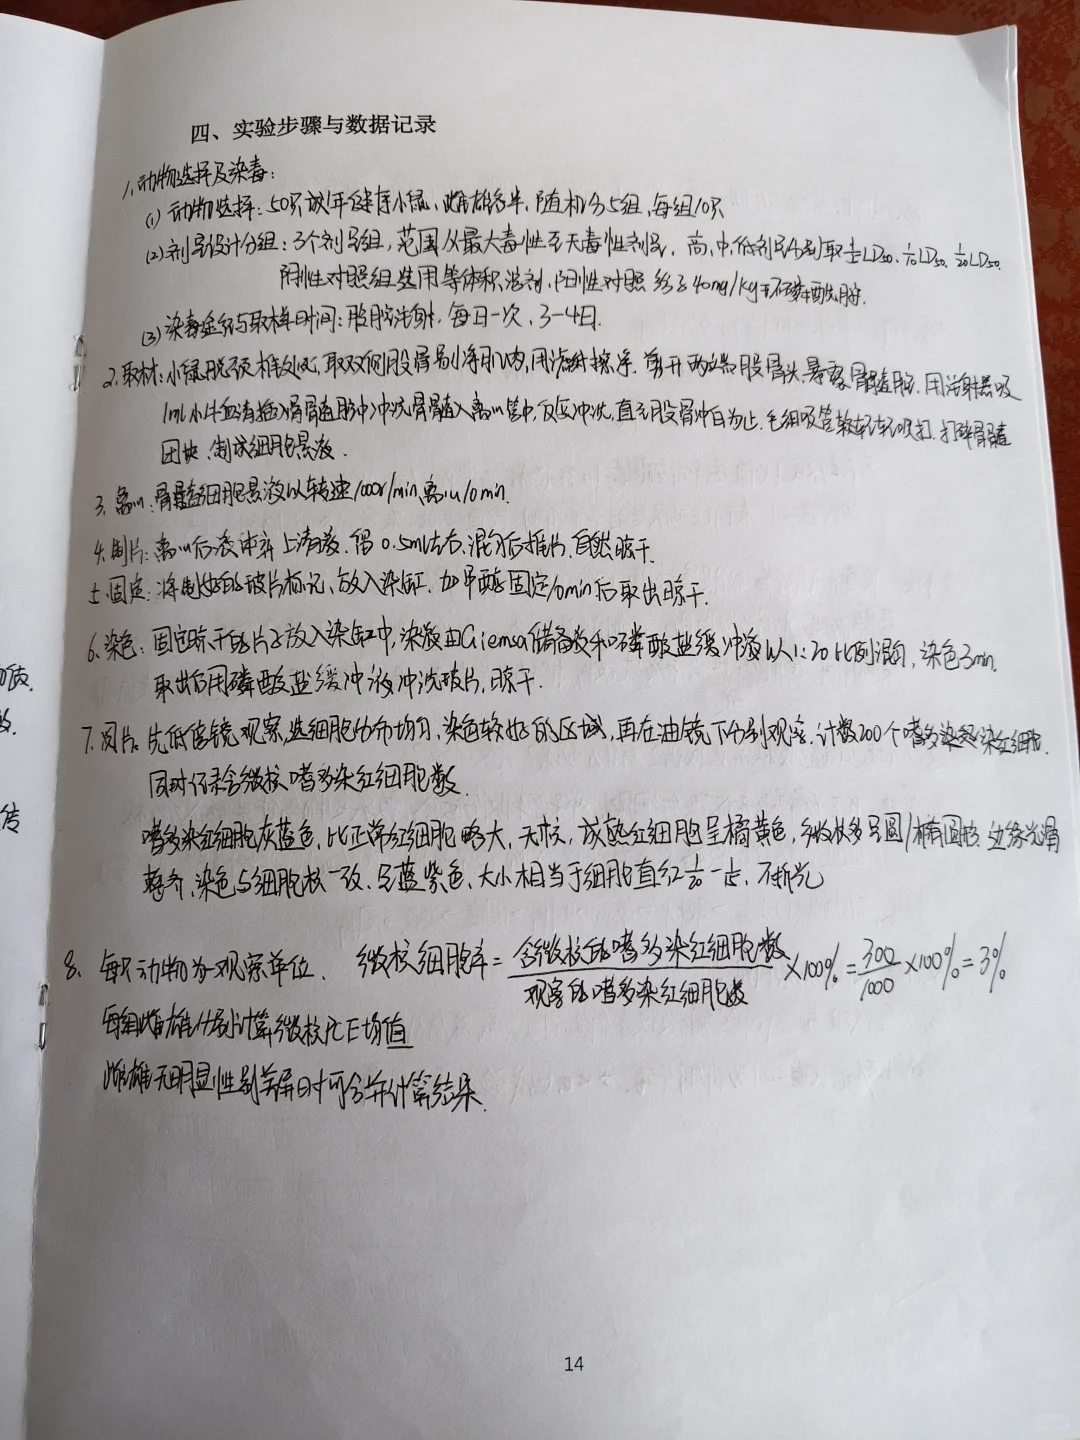 四、实验步骤与数据记录
1.动物选择及染毒：
(1) 动物选择：50只成年健康小鼠，雌雄各半，随机分5组，每组10只
(2)剂量设计分组：3个剂量组，范围从最大毒性至无毒性剂量，高、中、低剂量分别取 LD50、1/10 LD50、1/20 LD50
阴性对照组选用等体积溶剂，阳性对照给予40mg/kg环磷酰胺.
(3) 染毒途径与取样时间：腹腔注射，每日一次，3-4日.
2.取材：小鼠脱颈椎处死，取双侧股骨剔净肌肉，用滤纸擦净，剪开两端股骨头，暴露骨髓腔，用注射器吸
1ml小牛血清插入骨髓腔中冲洗骨髓入离心管中，反复冲洗，直至股骨冲白为止，毛细吸管轻轻吸打，打碎骨髓
团块、制成细胞悬液.
3.离心：骨髓细胞悬液以转速1000r/min离心10min.
4.制片：离心后液体弃上清液，留0.5ml左右，混匀后推片，自然晾干.
5.固定：将制好的玻片标记、放入染缸，加甲醇固定10min后取出晾干.
6.染色：固定晾干的片子放入染缸中，染液由Giemsa储备液和磷酸盐缓冲液以1:20比例混匀，染色3min.
取出后用磷酸盐缓冲液冲洗玻片，晾干.
7.阅片：先低倍镜观察，选细胞分布均匀，染色较好的区域，再在油镜下分别观察，计数200个嗜多染红细胞.
同时记录含微核嗜多染红细胞数
嗜多染红细胞灰蓝色，比正常红细胞略大，无核，成熟红细胞呈橘黄色，微核多呈圆/椭圆形，边缘光滑
整齐，染色与细胞核一致，呈蓝紫色，大小相当于细胞直径1/20-1/5，不折光
8、每只动物为一观察单位. 微核细胞率=含微核的嗜多染红细胞数/观察的嗜多染红细胞数×100%=300/1000×100%=3%
每组雌雄分别计算微核PCE均值
雌雄无明显性别差异时可合并计算结果.
14